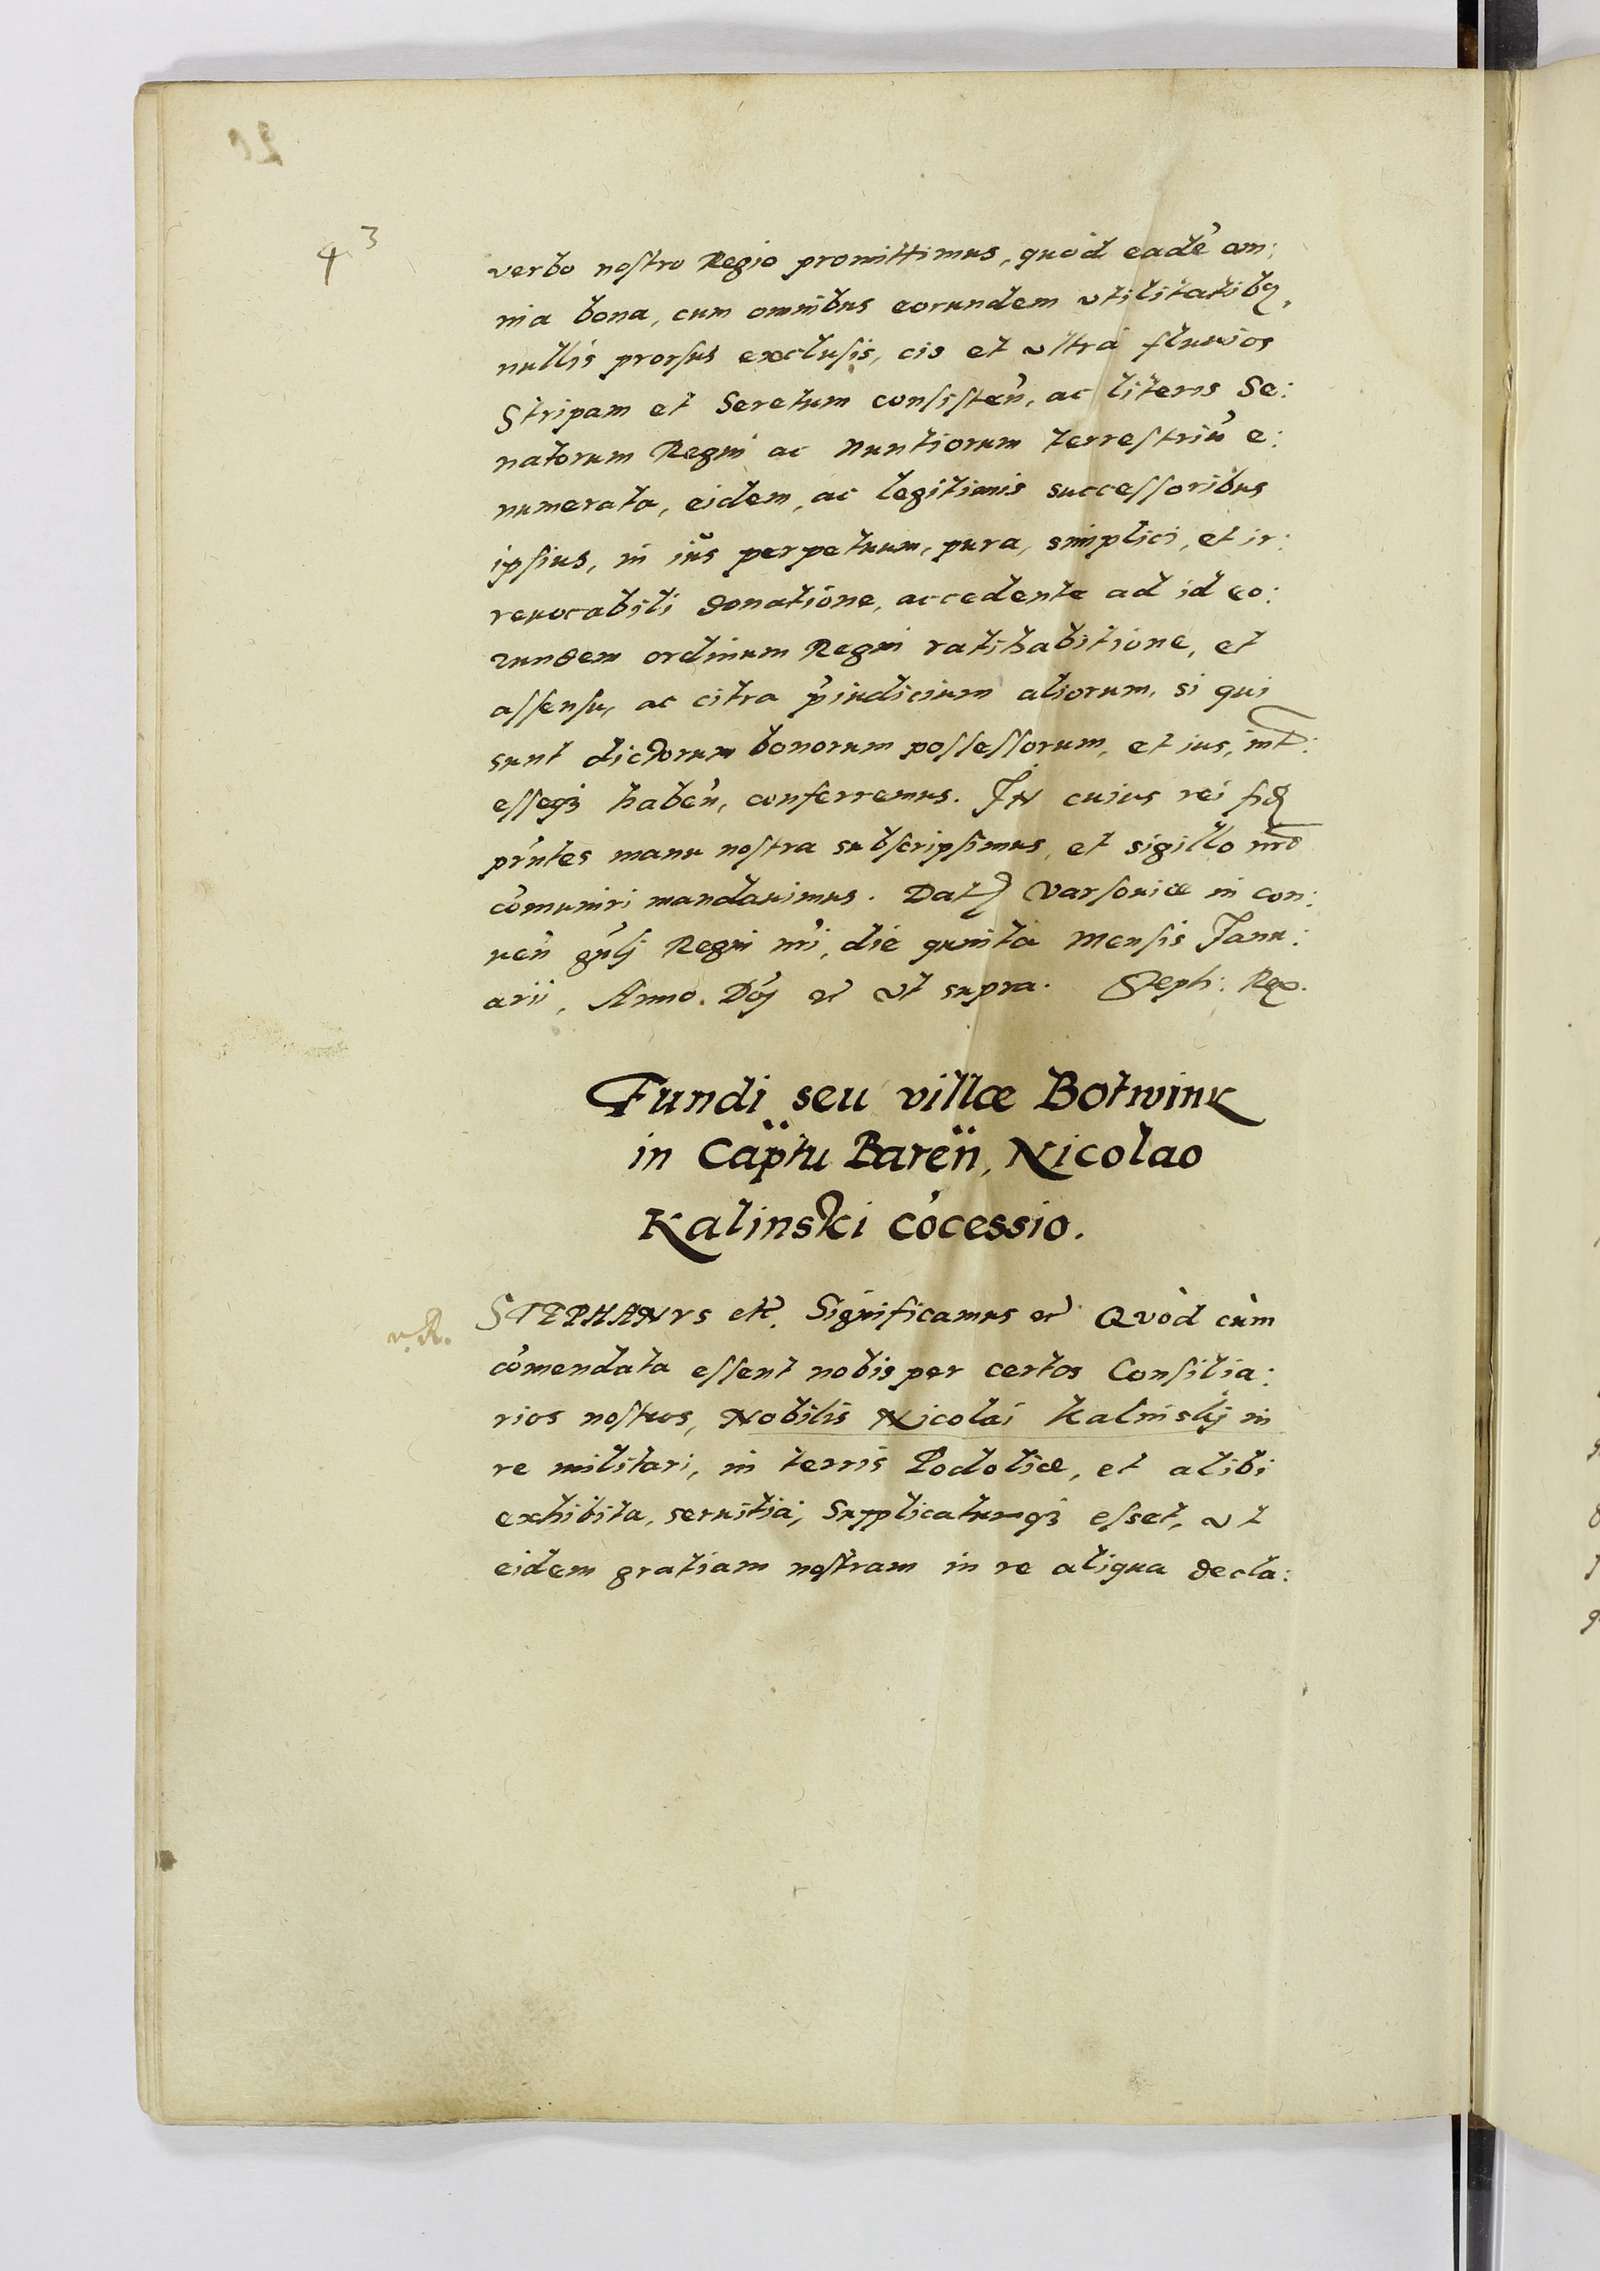 43
verbo nostro Regio promittimus, quòd eadē om:
nia bona, cum omnibus eorundem vtilitatibq,
nullis prorsus exclusis, cis et vltrà fluuios
Stripam et Seretum consisten̄, ac literis Se:
natorum Regni ac Nuntiorum terrestriū e:
numerata, eidem, ac legitimis successoribus
ipsius, in iūs perpetuum, pura, simplici, et ir:
reuocabili donatione, accedente ad id eo:
rundem ordinum Regni ratihabitione, et
assensu, ac citra p̄iudicium aliorum, si qui
sunt dictorum bonorum possessorum, et ius, int:
esseq3 haben̄, conferremus. IN cuius rei fid
pr̄ntes manu nostra subscripsimus, et sigillo nr̄o
cōmuniri mandauimus. Dat Varsouiæ in con:
uen̄ gn̄lj Regni nr̄i, die quinta Mensis Janu:
arii, Anno. Dōj et vt supra. Steph: Rex.
Fundi seu villæ Botwink
in Cap̈tu Baren̈, Nicolao
Kalinski cōcessio.
v. R.
STEPHANVS etc. Significamus et Quòd cùm
cōmendata essent nobis per certos Consilia:
rios nostros, Nobilis Nicolai Kalinskij in
re militari, in terris Podoliæ, et alibi
exhibita, seruitia, Supplicatumq3 esset, vt
eidem gratiam nostram in re aliqua decla: